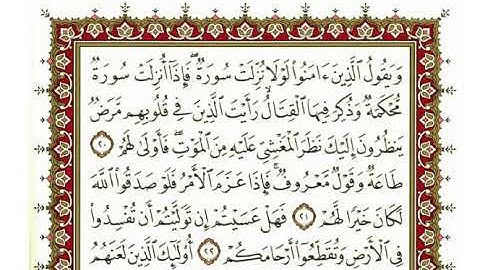 وَيَقُولُ ٱلَّذِينَ ءَامَنُوا۟ لَوْلَا نُزِّلَتْ سُورَةٌ ۖ فَإِذَآ أُنزِلَتْ سُورَةٌ
مُّحْكَمَةٌ وَذُكِرَ فِيهَا ٱلْقِتَالُ ۙ رَأَيْتَ ٱلَّذِينَ فِى قُلُوبِهِم مَّرَضٌ
يَنظُرُونَ إِلَيْكَ نَظَرَ ٱلْمَغْشِىِّ عَلَيْهِ مِنَ ٱلْمَوْتِ ۖ فَأَوْلَىٰ لَهُمْ ٢٠
طَاعَةٌ وَقَوْلٌ مَّعْرُوفٌ ۚ فَإِذَا عَزَمَ ٱلْأَمْرُ فَلَوْ صَدَقُوا۟ ٱللَّهَ
لَكَانَ خَيْرًا لَّهُمْ ٢١ فَهَلْ عَسَيْتُمْ إِن تَوَلَّيْتُمْ أَن تُفْسِدُوا۟
فِى ٱلْأَرْضِ وَتُقَطِّعُوٓا۟ أَرْحَامَكُمْ ٢٢ أُو۟لَـٰٓئِكَ ٱلَّذِينَ لَعَنَهُمُ